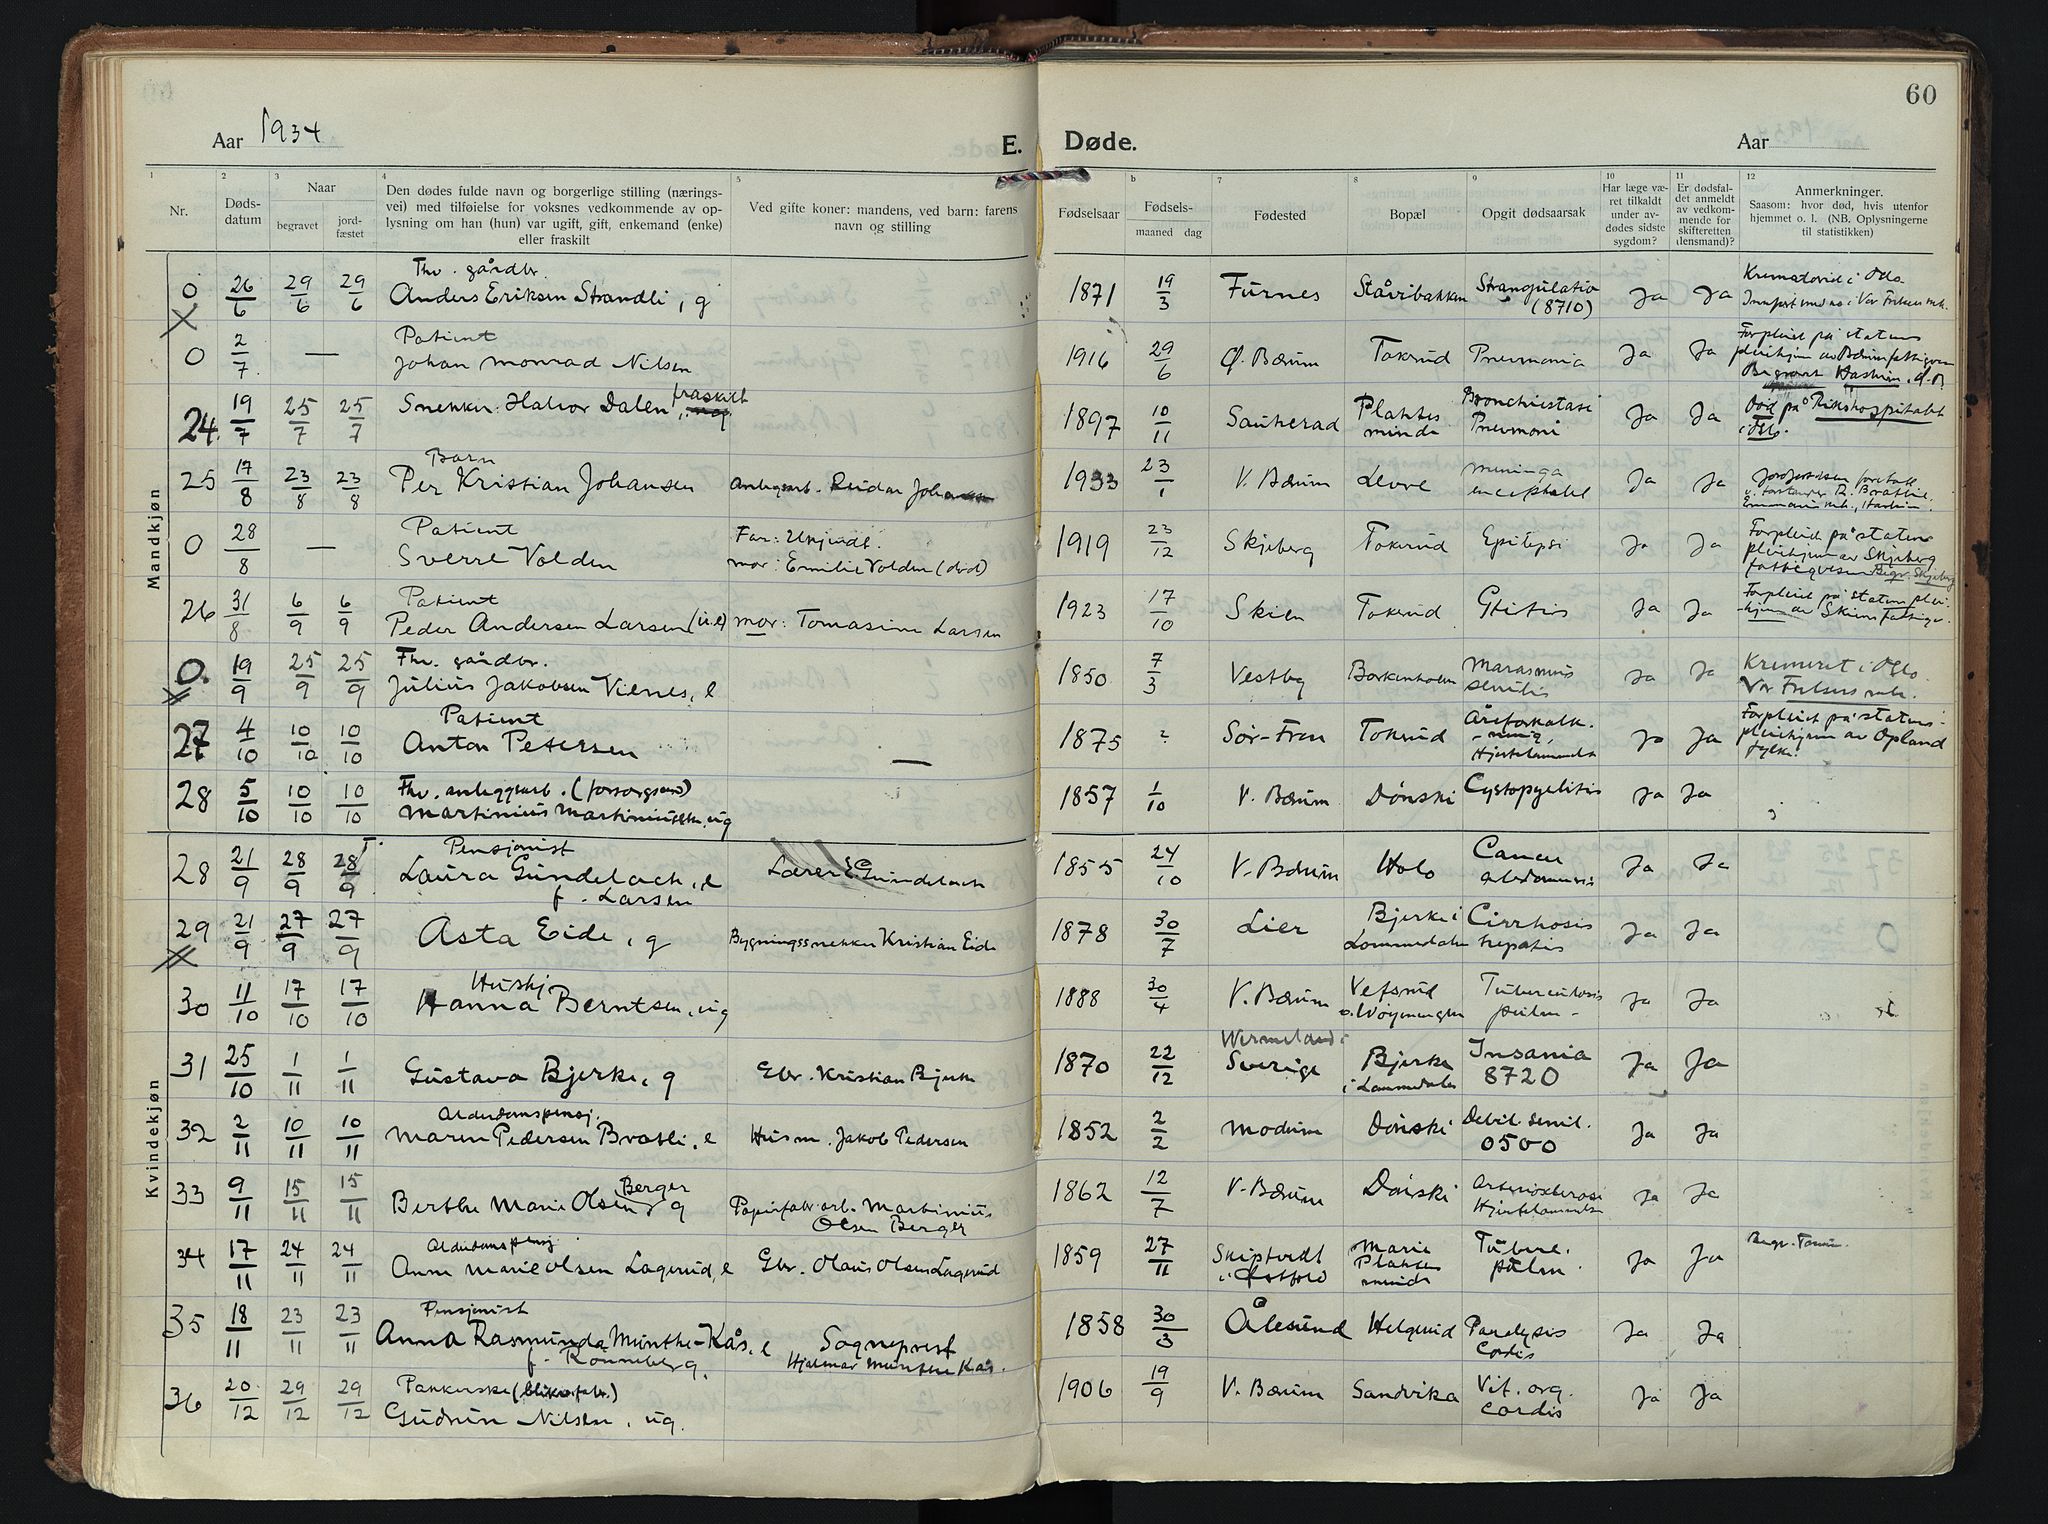 60
Aar 1934
E. Døde.
Aar
1 2 3 4 5 b 7 8 9 10 11 12
Nr.
Døds-
datum
Naar
begravet
jord-
fæstet
Den dødes fulde navn og borgerlige stilling (nærings-
vei) med tilføielse for voksnes vedkommende av op-
lysning om han (hun) var ugift, gift, enkemand (enke)
eller fraskilt
Ved gifte koner: mandens, ved barn: farens
navn og stilling
Fødselsaar
Fødsels-
maaned dag
Fødested
Bopæl
Opgit dødsaarsak
Har læge væ-
ret tilkaldt
under av-
dødes sidste
sygdom?
Er dødsfal-
det anmeldt
av vedkom-
mende for
skifteretten
(lensmand)?
Anmerkninger.
Saasom: hvor død, hvis utenfor
hjemmet o. l. (NB. Oplysningerne
til statistikken)
Mandkjøn
0 26/6 29/6 29/6 Fhv. gårdbr. Anders Eriksen Strandli, g 1871 19/3 Furnes Ståvibakken Strangulatio (8710) Ja Ja Krematoriet i Oslo
0 2/7 — Patient Johan Monrad Nilsen 1916 29/6 Ø. Bærum Tokerud Pneumonia Ja Ja Forpleiet på statens pleiehjem av Bærum fattigvesen Begravet Haslum
24. 19/7 25/7 25/7 Snekker Halvor Dalen, fraskilt 1897 10/11 Sauherad Plahtes minde Bronchiectasi Pneumoni Ja Ja Død på Rikshospitalet i Oslo.
25 17/8 23/8 23/8 Barn Per Kristian Johansen Anlegsarb. Reidar Johansen 1933 23/1 V. Bærum Levre meninga encephalit Ja Ja
0 28/8 — Patient Sverre Volden Far: Ukjendt. mor: Emilie Volden (død) 1919 23/12 Skjeberg Tokerud Epilepsi Ja Ja Forpleiet på statens pleiehjem av Skjeberg fattigvesen Begr. Skjeberg
26 31/8 6/9 6/9 Patient Peder Andersen Larsen (u.e) mor: Tomasine Larsen 1923 17/10 Skien Tokerud Otitis Ja Ja Forpleiet på statens plei- hjem av Skiens Fattigv.
0. 19/9 25/9 25/9 Fhv. gårdbr. Julius Jakobsen Viernes, e 1850 7/3 Vestby Borkenholm Marasmus senilis Ja Ja Kremeret i Oslo. Vor Frelsers
27 4/10 10/10 10/10 Patient Anton Petersen — 1875 ? Sør-Fron Tokerud Åreforkalk- ning, Hjertelammelse Ja Ja Forpleiet på statens- pleiehjem av Opland fylke.
28 5/10 10/10 10/10 Fhv. anleggsarb. (forsorgsund) Martinius Martiniussen, ug 1857 1/10 V. Bærum Dønski Cystopyelitis Ja Ja
Kvindekjøn
28 21/9 28/9 28/9 Pensjonist Laura Gundelach, e f. Larsen Lærer E. Gundelach 1855 24/10 V. Bærum Holo Cancer abdominis Ja Ja
29 21/9 27/9 27/9 Asta Eide, g Bygningssnekker Kristian Eide 1878 30/7 Lier Bjerke i Lommedalen Cirrhosis hepatis Ja Ja
30 11/10 17/10 17/10 Hushj Hanna Berntsen, ug 1888 30/4 V. Bærum Vefsrud Tuberculosis pulm- Ja Ja
31 25/10 1/11 1/11 Gustava Bjerke, g Gbr. Kristian Bjerke 1870 22/12 Wermeland i Sverige Bjerke i Lommedalen Insania 8720 Ja Ja
32 2/11 10/11 10/11 Alderdomspensj. Maren Pedersen Bratli, e Husm. Jakob Pedersen 1852 2/2 Modum Dønski Debil. senil. 0500 Ja Ja
33 9/11 15/11 15/11 Berthe Marie Olsen Berger g Papirfabr. arb. Martinius Olsen Berger 1862 12/7 V. Bærum Dønski Arteriosklerose Hjertelammelse Ja Ja
34 17/11 24/11 24/11 Alderdomspensj. Anne Marie Olsen Lagerud, e Gbr. Olaus Olsen Lagerud 1859 27/11 Skiptvedt i Østfold Marie Plahtes minde Tuberc. pulm Ja Ja Begr. Tanum.
35 18/11 23/11 23/11 Pensjonist Anna Rasmunda Munthe-Kås, e f. Rønneberg. Sogneprest Hjalmar Munthe Kås. 1858 30/3 Ålesund Helgerud Paralysis Cordis Ja Ja
36 20/12 29/12 29/12 Pakkerske (blikv.fabr.) Gudrun Nilsen, ug. 1906 19/9 V. Bærum Sandvika Vit. org. cordis Ja Ja